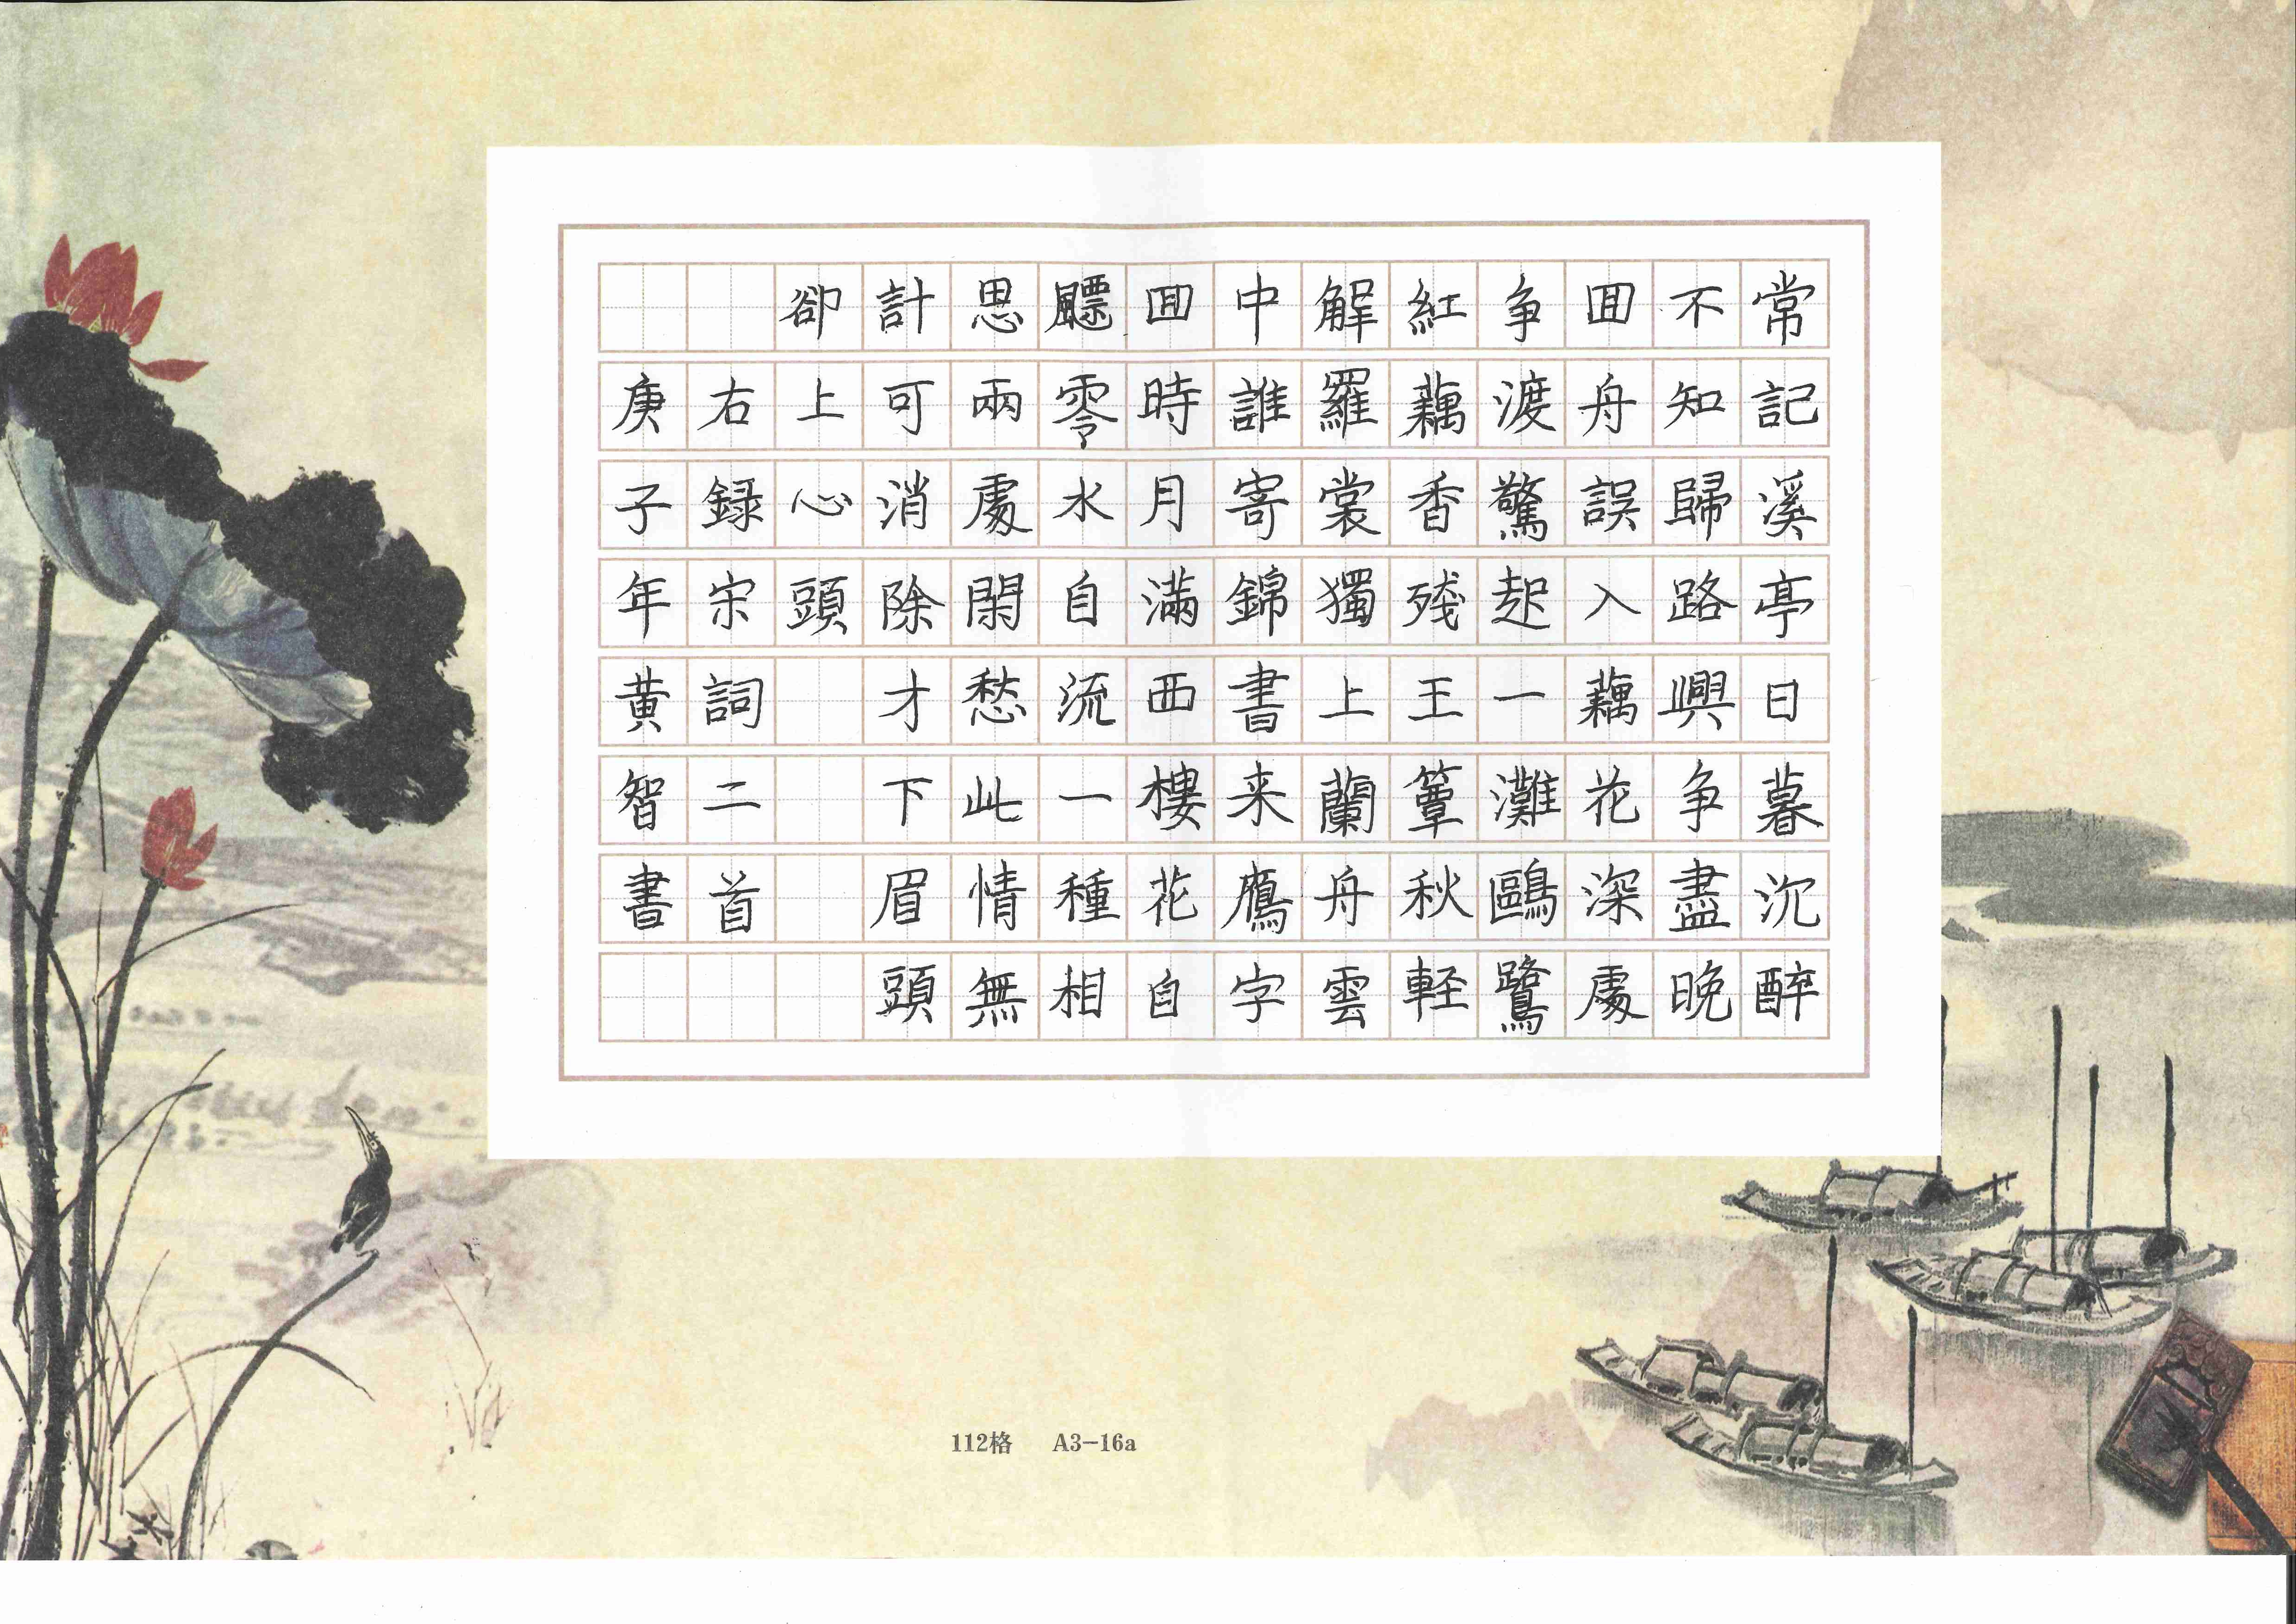 常記溪亭日暮沉醉
不知歸路興争盡晚
囬舟誤入藕花深處
争渡驚起一灘鷗鷺
紅藕香殘王簟秋軽
解羅裳獨上蘭舟雲
中誰寄錦書来鷹字
囬時月滿西樓花自
飃零水自流一種相
思兩處閑愁此情無
計可消除才下眉頭
卻上心頭
右録宋詞二首
庚子年黄智書
112格 A3-16a